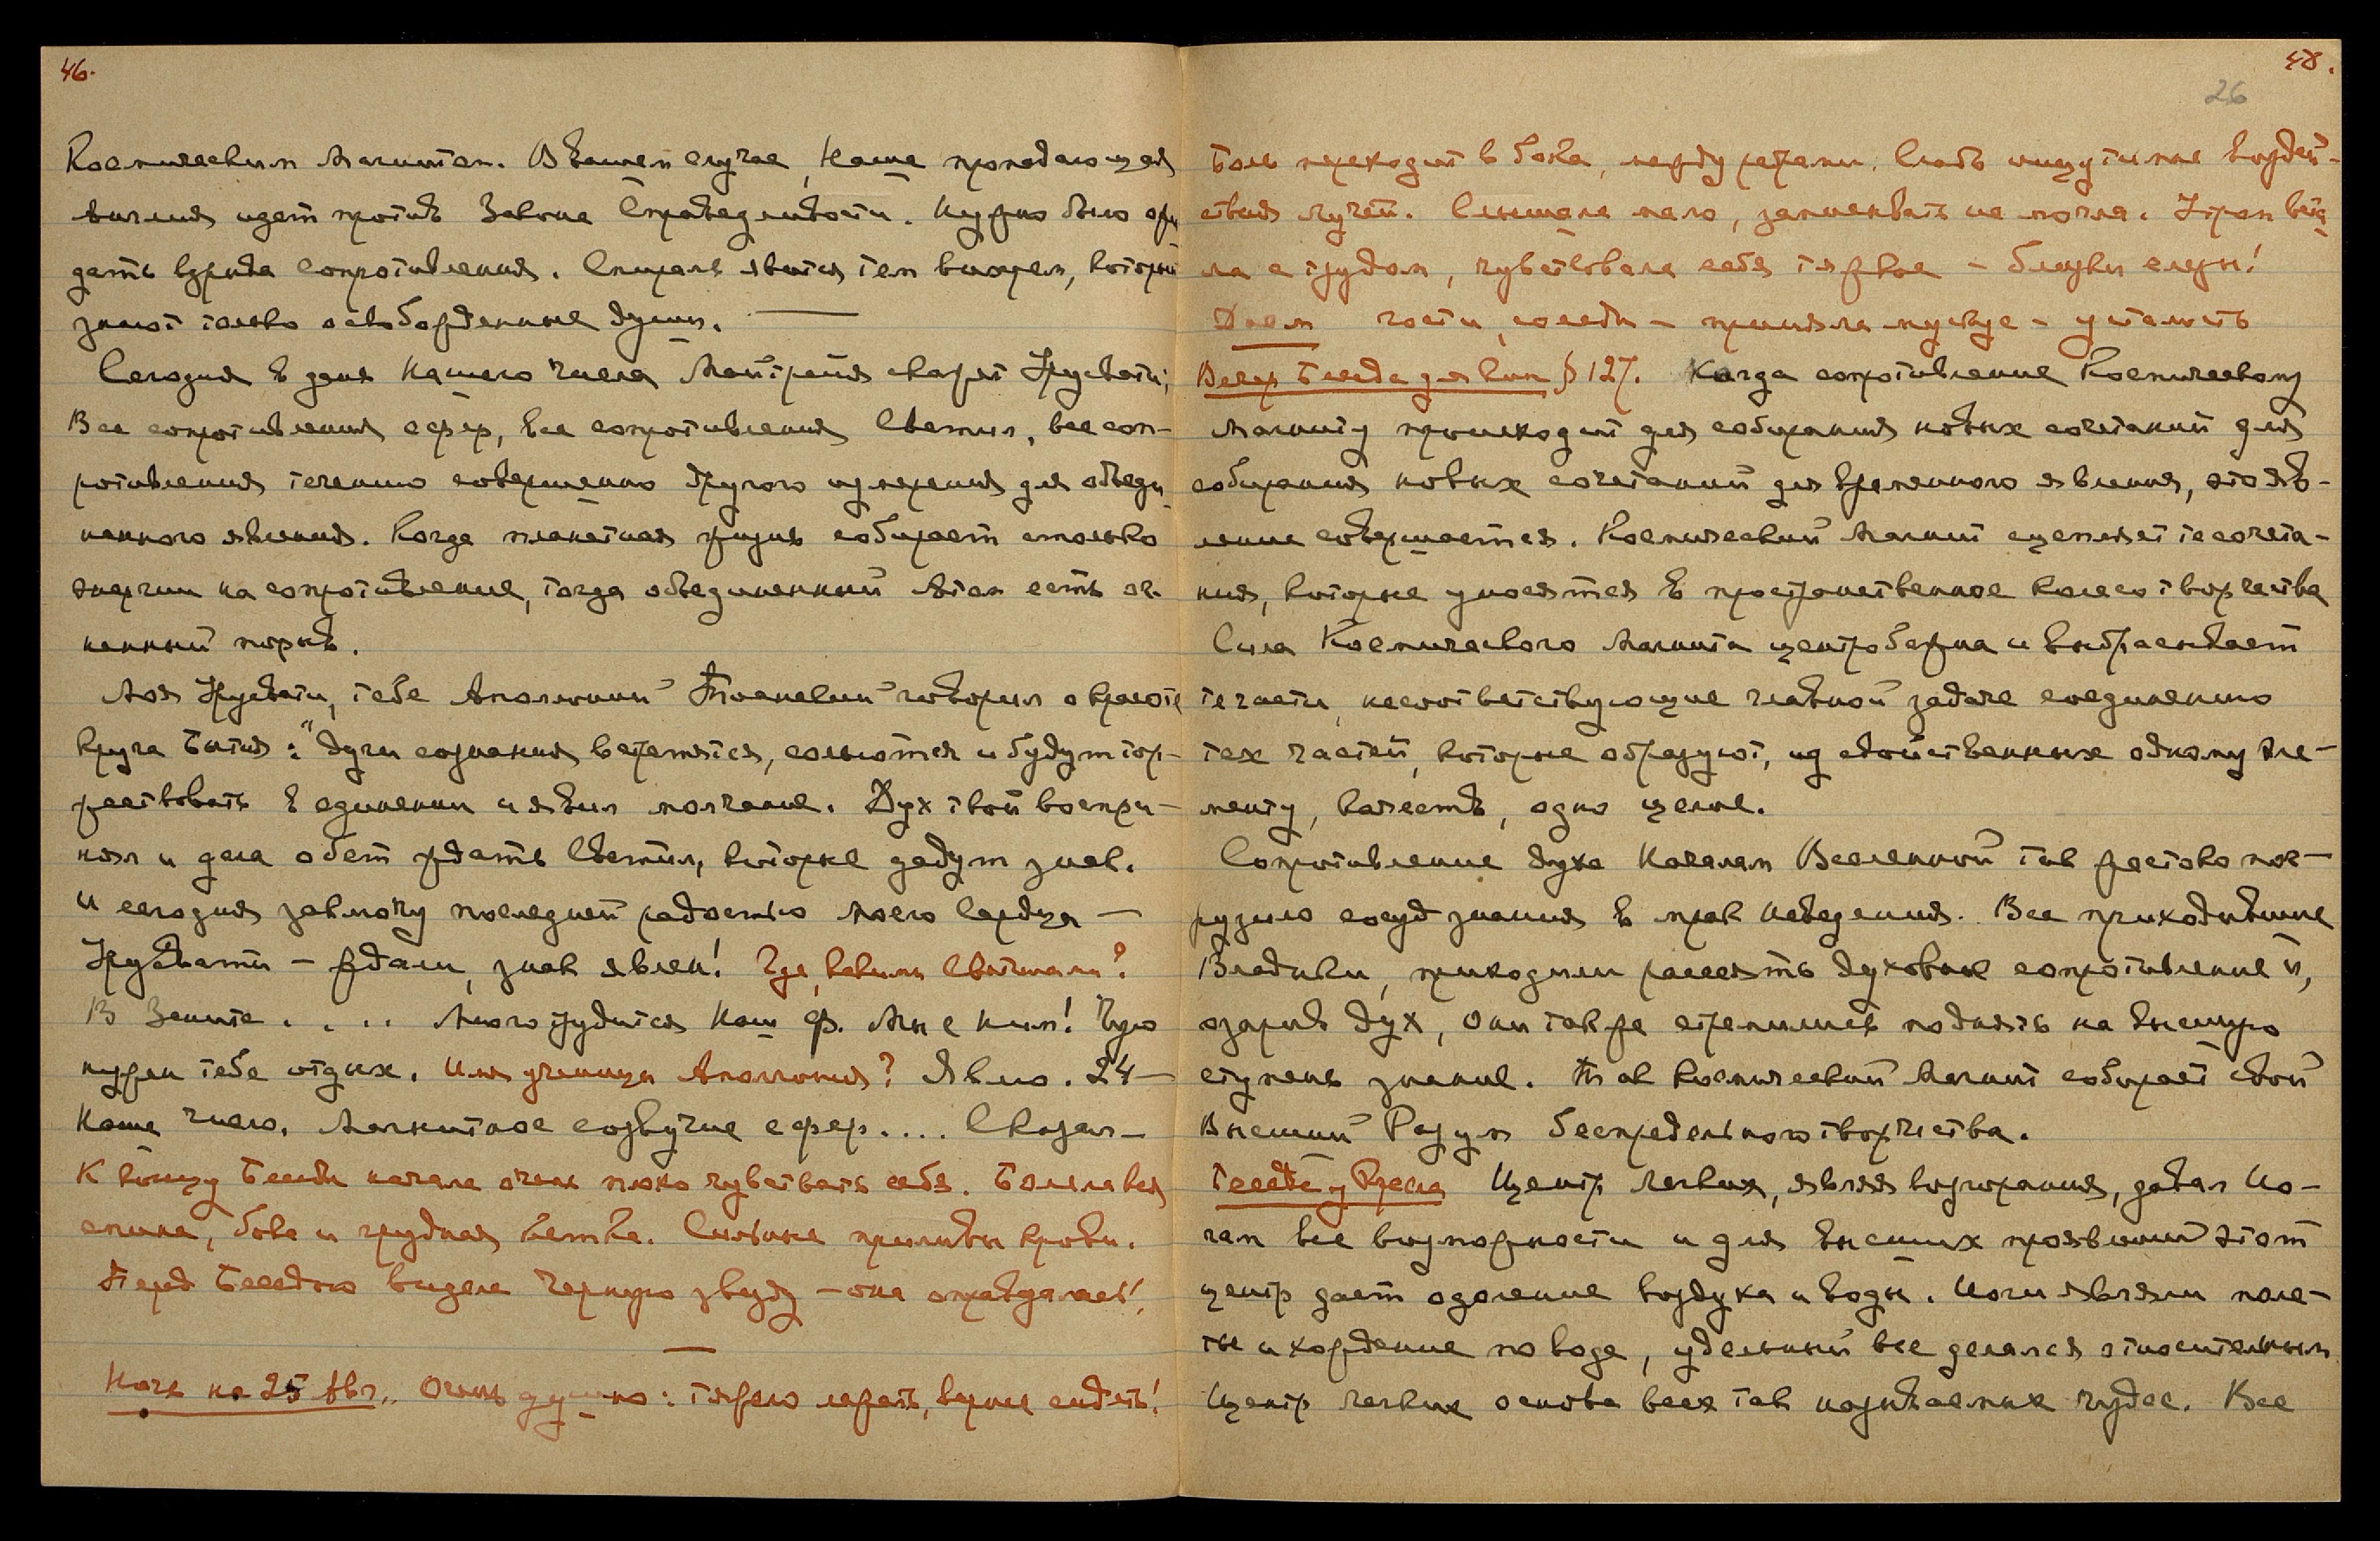 46.
Космическим Магнитом. В вашем случае, Наша пропадающая
вития идет против Закона Справедливости. Нужно было ожи
дать взрыва сопротивления. Спираль явится тем вихрем, который
знают только освобожденные души. —
Сегодня в день Нашего числа Майтрейя скажет Урусвати;
Все сопротивления сфер, все сопротивления Светил, все соп-
ротивления течению совершенно другого измерения для объеди
ненного явления. Когда планетная жизнь собирает столько
энергии на сопротивление, тогда объединенный Атом есть ог-
ненный порыв.
Моя Урусвати, тебе Аполлоний Тианский говорил о красоте
круга Бытия: "Души сознания встретятся, сольются и будут тор-
жествовать в единении и явил молчание. Дух твой воспри-
нял и дала обет ждать Светил, которые дадут знак.
И сегодня закончу последней радостью Моего Сердца —
Урусвати — ждали, знак явлен! Где, какими Светилами?
В Зените . . . . Много трудится Наш Ф. Мы с ним! Чую
нужен тебе отдых. Имя ученицы Аполлония? Явлю. 24 —
Наше число. Магнитное созвучие сфер.... Сказал —
К концу Беседы начала очень плохо чувствовать себя. Болела вся
спина, бока и грудная клетка. Сильные приливы крови.
Перед Беседою видела черную звезду — она оправдалась!
—
Ночь на 25 Авг.. Очень душно: тяжело лежать, лучше сидеть!
48.
26
Боль переходит в бока, между ребрами. Слабо ощутимые воздей-
ствия Лучей. Слышала мало, записывать не могла. Утром вста
ла с трудом, чувствовала себя тяжко — близки слезы!
Днем гости, соседи — пришла пустое — усталость
Вечер Беседа для книг § 127. Когда сопротивление Космическому
Магниту происходит для собирания новых сочетаний для
собирания новых сочетаний для временного явления, это яв-
ление совершается. Космический Магнит сцепляет те сочета-
ния, которые уносятся в пространственное колесо творчества
Сила Космического Магнита центробежна и выбрасывает
те части, несоответствующие главной задаче соединению
тех частей, которые образуют, из свойственных одному эле-
менту, качеств, одно целое.
Сопротивление духа Началам Вселенной так жестоко пог-
рузило сосуд знания в мрак неведения. Все приходившие
Владыки, приходили рассеять духовные сопротивление и,
озарив дух, Они так же стремились поднять на высшую
ступень знание. Так Космический Магнит собирает свой
Высший Разум беспредельного творчества.
Беседа у Кресла Центр легких, являя возгорания, давал Йо-
гам все возможности и для высших проявлений этот
центр дает одоление воздуха и воды. Йоги являли поле-
ты и хождение по воде, удельный вес делался относительным
Центр легких основа всех так называемых чудес. Все